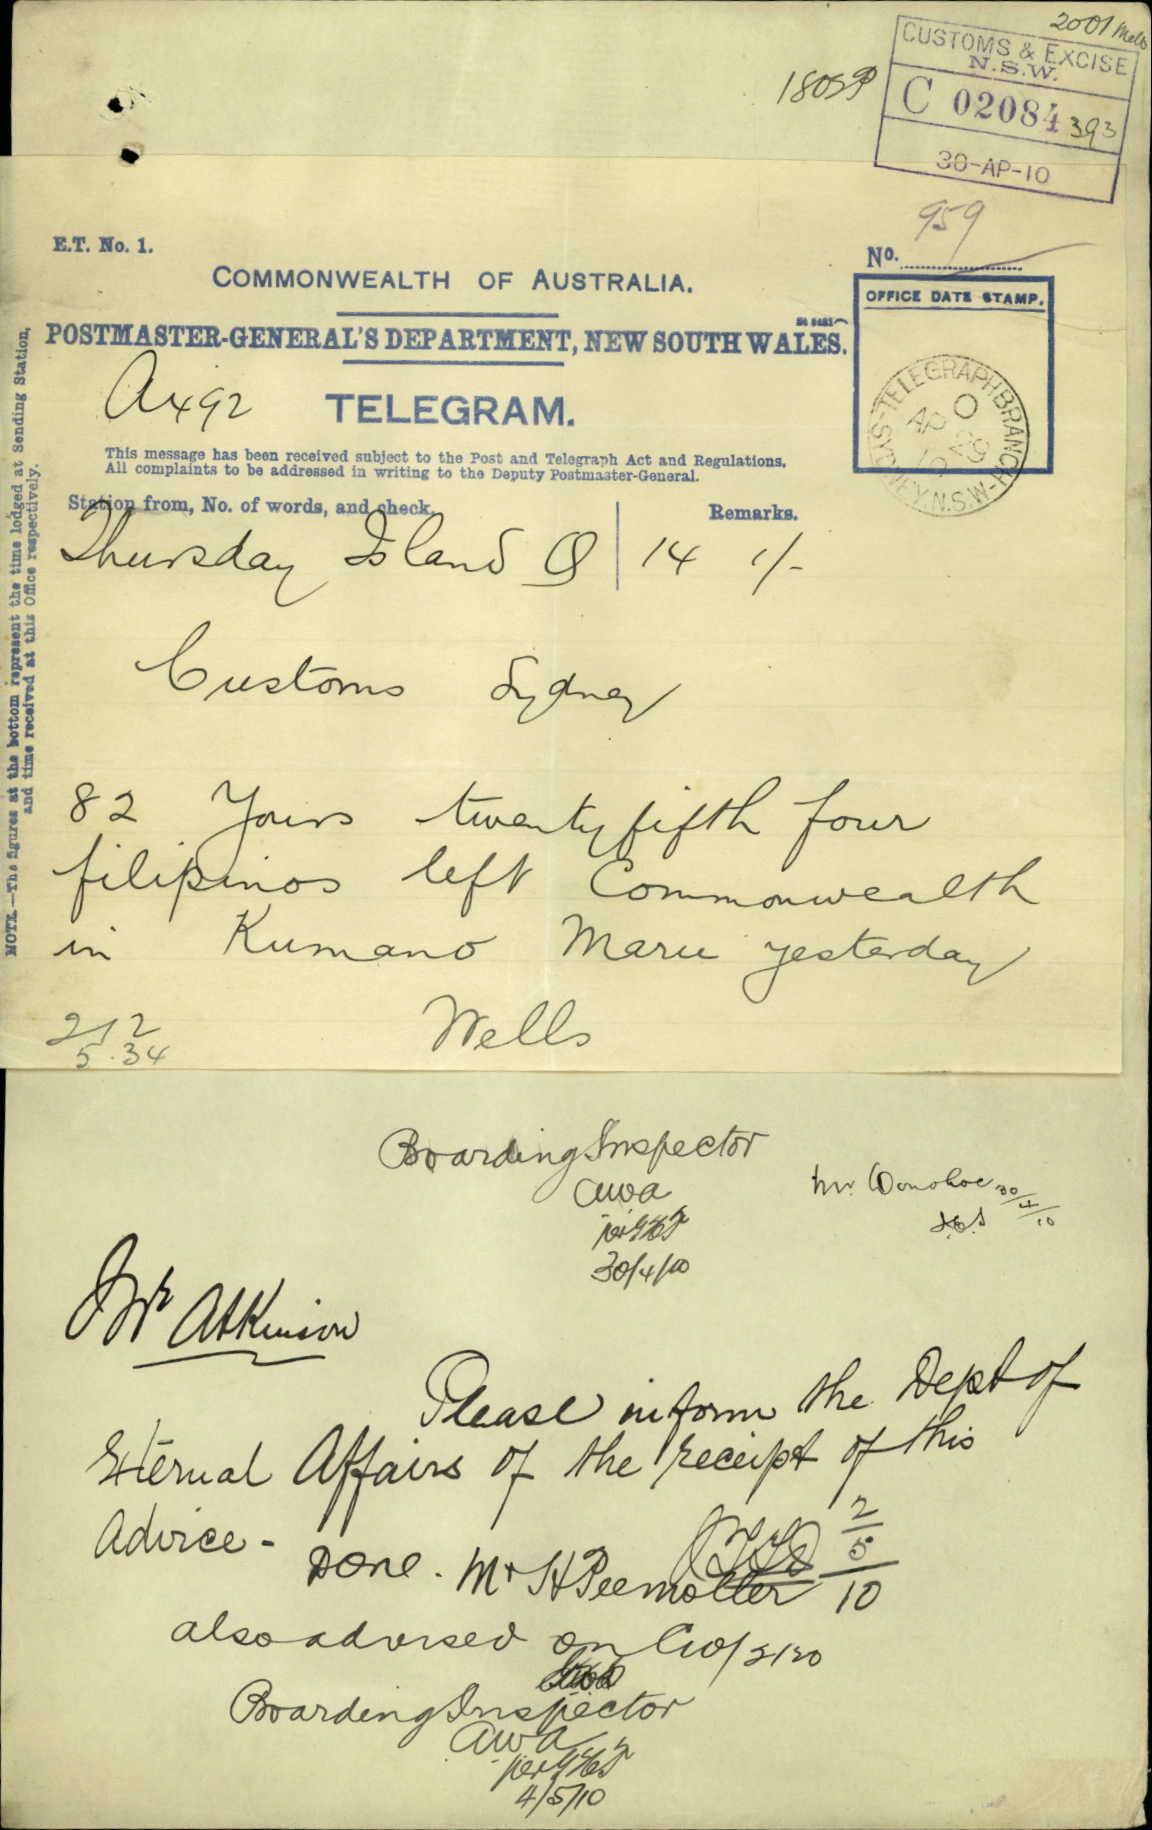 2001 Melb
CUSTOMS & EXCISE
N.S.W.
C 02084 393
30-AP-10
959
E.T. No. 1.
No.
COMMONWEALTH OF AUSTRALIA.
OFFICE DATE STAMP.
POSTMASTER-GENERAL'S DEPARTMENT, NEW SOUTH WALES.
TELEGRAM.
TELEGRAPH BRANCH
AP 29
SYDNEY. N.S.W.
This message has been received subject to the Post and Telegraph Act and Regulations.
All complaints to be addressed in writing to the Deputy Postmaster-General.
Station from, No. of words, and check.
Remarks.
Thursday Island Q 14 1/-
Customs Sydney
82 Yours twentyfifth four
filipinos left Commonwealth
in Kumano Maru yesterday
Wells
5.34
NOTE.—The figures at the bottom represent the time lodged at Sending Station,
and time received at this Office respectively.
Boarding Inspector
awa
30/4/10
Mr. Donohoe 30/4/10
Mr Atkinson
Please inform the Dept of
External Affairs of the receipt of this
Advice -
2/5/10
Done. Mr H Peemoller
also advised on
Boarding Inspector
awa
4/5/10